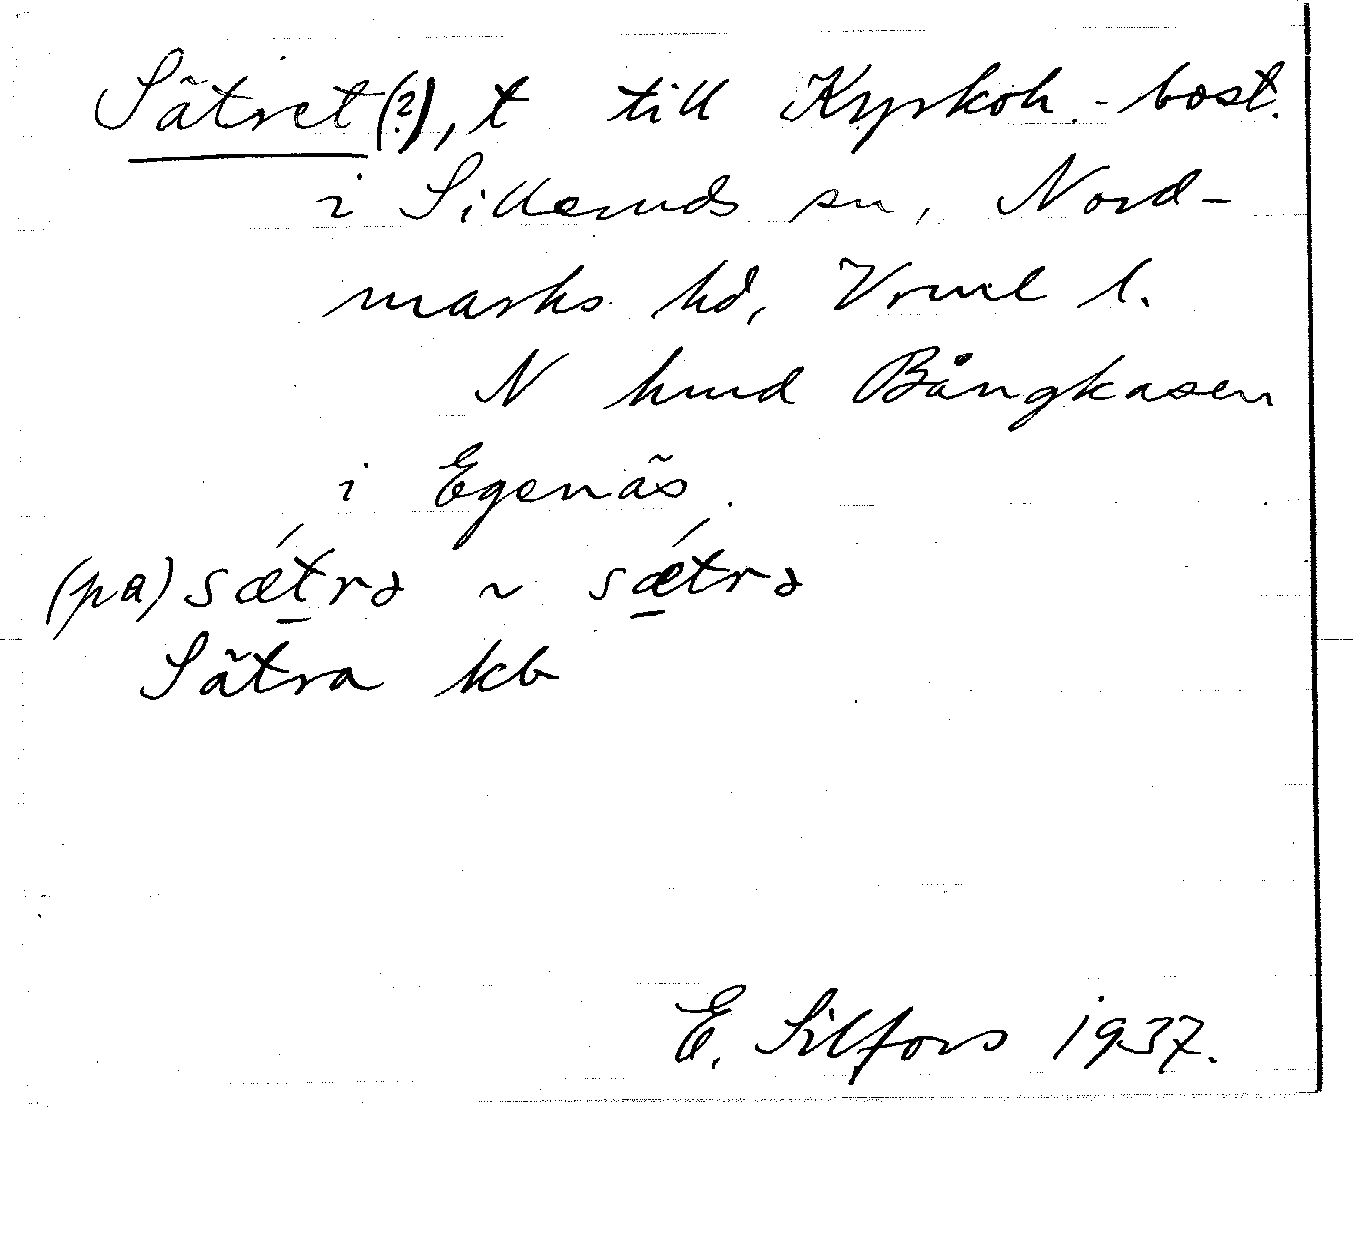 Sätret (?), t till Kyrkoh.-bost.
i Silleruds sn, Nord-
marks hd, Vrml l.
N hmd Bångkasen
i Egenäs.
(pa) sǽtrə ~ sǽtrə
Sätra kb
E. Silfors 1937.